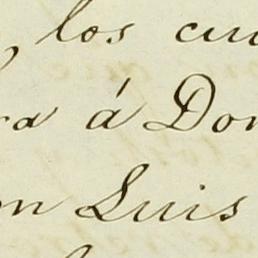 los cu
ra á Don
on Luis